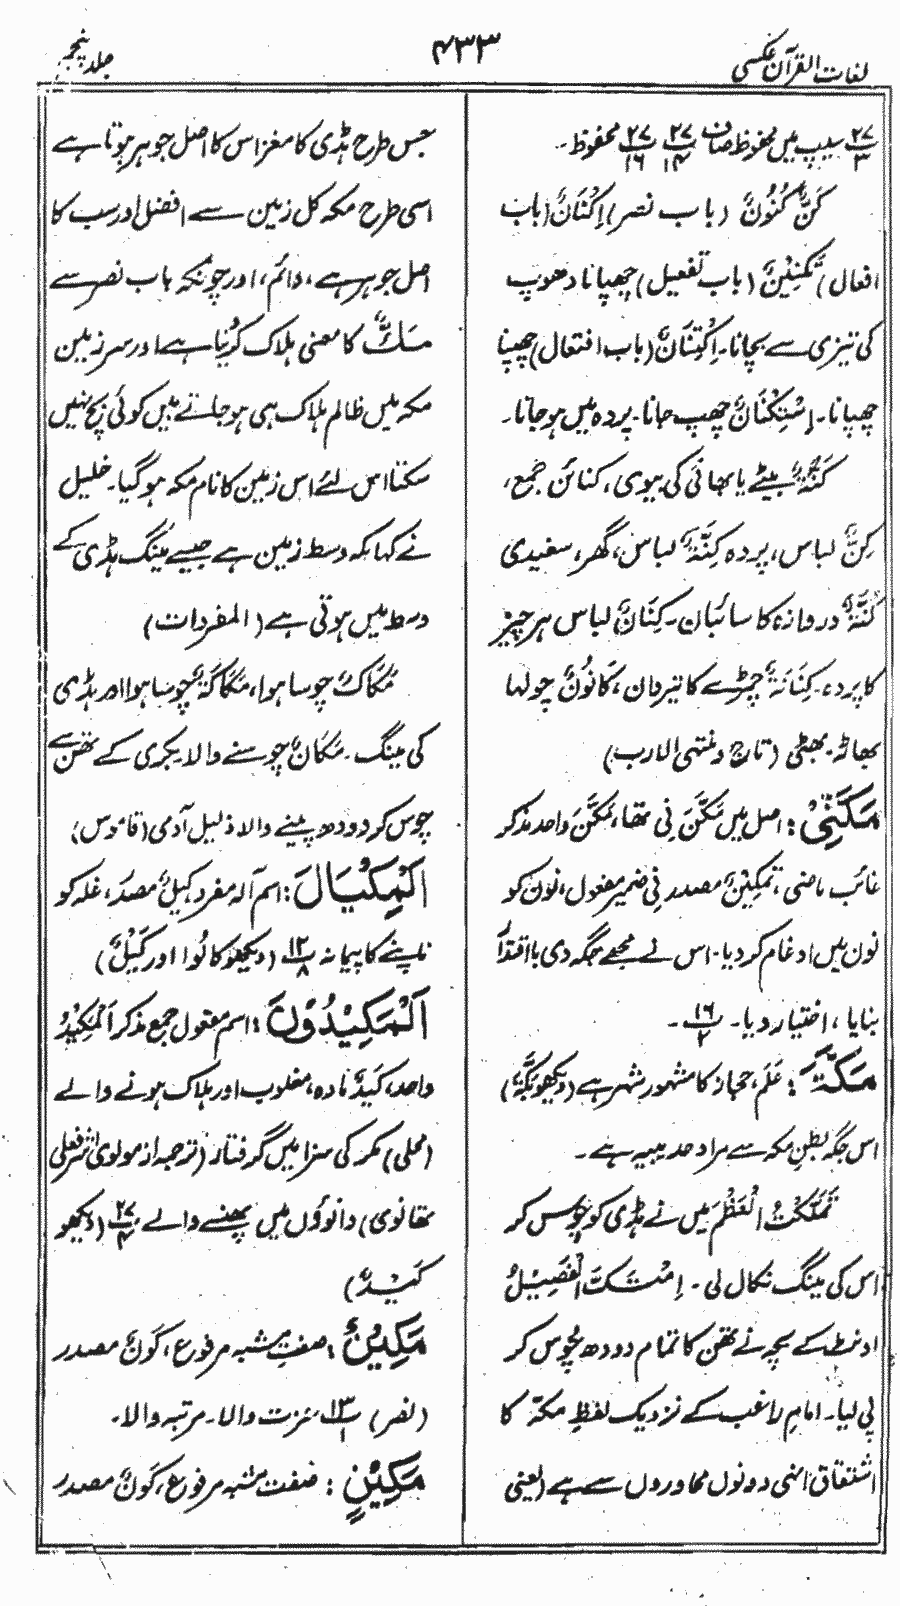 لغات القرآن عکسی
۴۳۳
جلد پنجم
۲۷/۳ سیپ میں محفوظ صاف ۲۷/۱۴ ۲۷/۱۶ محفوظ۔
کَنٌّ کُنُوْنٌ (باب نصر) اِکْنَانٌ (باب
افعال) تَکْنِیْنٌ (باب تفعیل) چھپانا دھوپ
کی تیزی سے بچانا۔ اِکْتِنَانٌ (باب افتعال) چھپنا
چھپانا۔ اِسْتِکْنَانٌ چھپ جانا۔ پردہ میں ہو جانا۔
کَنَّۃٌ بیٹے یا بھائی کی بیوی، کنائن جمع،
کِنٌّ لباس، پردہ کِنَّۃٌ لباس، گھر، سفیدی
کُنَّۃٌ دروازہ کا سائبان۔ کِنَانٌ لباس ہر چیز
کا پردہ۔ کِنَانَۃٌ چمڑے کا تیردان، کَانُوْنٌ چولہا
بھاڑ۔ بھٹی (تاج و منتہی الارب)
مَکَّنِّیْ : اصل میں مَکَّنَ نِی تھا، مَکَّنَ واحد مذکر
غائب ماضی، تَمْکِیْنٌ مصدر نِی ضمیر مفعول، نون کو
نون میں ادغام کر دیا۔ اس نے مجھے جگہ دی با اقتدار
بنایا، اختیار دیا۔ ۱۶/۲ ۔
مَکَّۃَ : عَلَم، حجاز کا مشہور شہر ہے (دیکھو بَکَّۃَ)
اس جگہ بطنِ مکہ سے مراد حدیبیہ ہے۔
تَمَکَّکْتُ الْعَظْمَ میں نے ہڈی کو چوس کر
اس کی مینگ نکال لی۔ اِمْتَکَّ الْفَصِیْلُ
اونٹ کے بچہ نے تھن کا تمام دودھ چوس کر
پی لیا۔ امام راغب کے نزدیک لفظِ مکہ کا
اشتقاق انہی دونوں محاوروں سے ہے (یعنی
جس طرح ہڈی کا مغز اس کا اصل جوہر ہوتا ہے
اسی طرح مکہ کل زمین سے افضل اور سب کا
اصل جوہر ہے، دائم، اور چونکہ باب نصر سے
مَکٌّ کا معنی ہلاک کرنا ہے اور سرزمین
مکہ میں ظالم ہلاک ہی ہو جاتے ہیں کوئی بچ نہیں
سکتا اس لئے اس زمین کا نام مکہ ہو گیا۔ خلیل
نے کہا کہ وسط زمین ہے جیسے مینگ ہڈی کے
وسط میں ہوتی ہے (المفردات)
مُکَاکٌ چوسا ہوا، مُکَاکَۃٌ چوسا ہوا اور ہڈی
کی مینگ۔ مَکَّانٌ چوسنے والا بکری کے تھن سے
چوس کر دودھ پینے والا ذلیل آدمی (قاموس)
اَلْمِکْیَالَ : اسم آلہ مفرد کَیْلٌ مصدر، غلہ کو
ناپنے کا پیمانہ ۱۲/۸ (دیکھو کَالُوْا اور کَیْلٌ)
اَلْمَکِیْدُوْنَ : اسم مفعول جمع مذکر اَلْمَکِیْدُ
واحد، کَیْدٌ مادہ، مغلوب اور ہلاک ہونے والے
(محلی) مکر کی سزا میں گرفتار (ترجمہ از مولوی اشرفعلی
تھانوی) دانوؤں میں پھنسنے والے ۲۷/۴ (دیکھو
کَیْدٌ)
مَکِیْنٌ : صفتِ مشبہ مرفوع، کَوْنٌ مصدر
(نصر) ۱۳/۱ عزت والا۔ مرتبہ والا۔
مَکِیْنٍ : صفت مشبہ مرفوع، کَوْنٌ مصدر